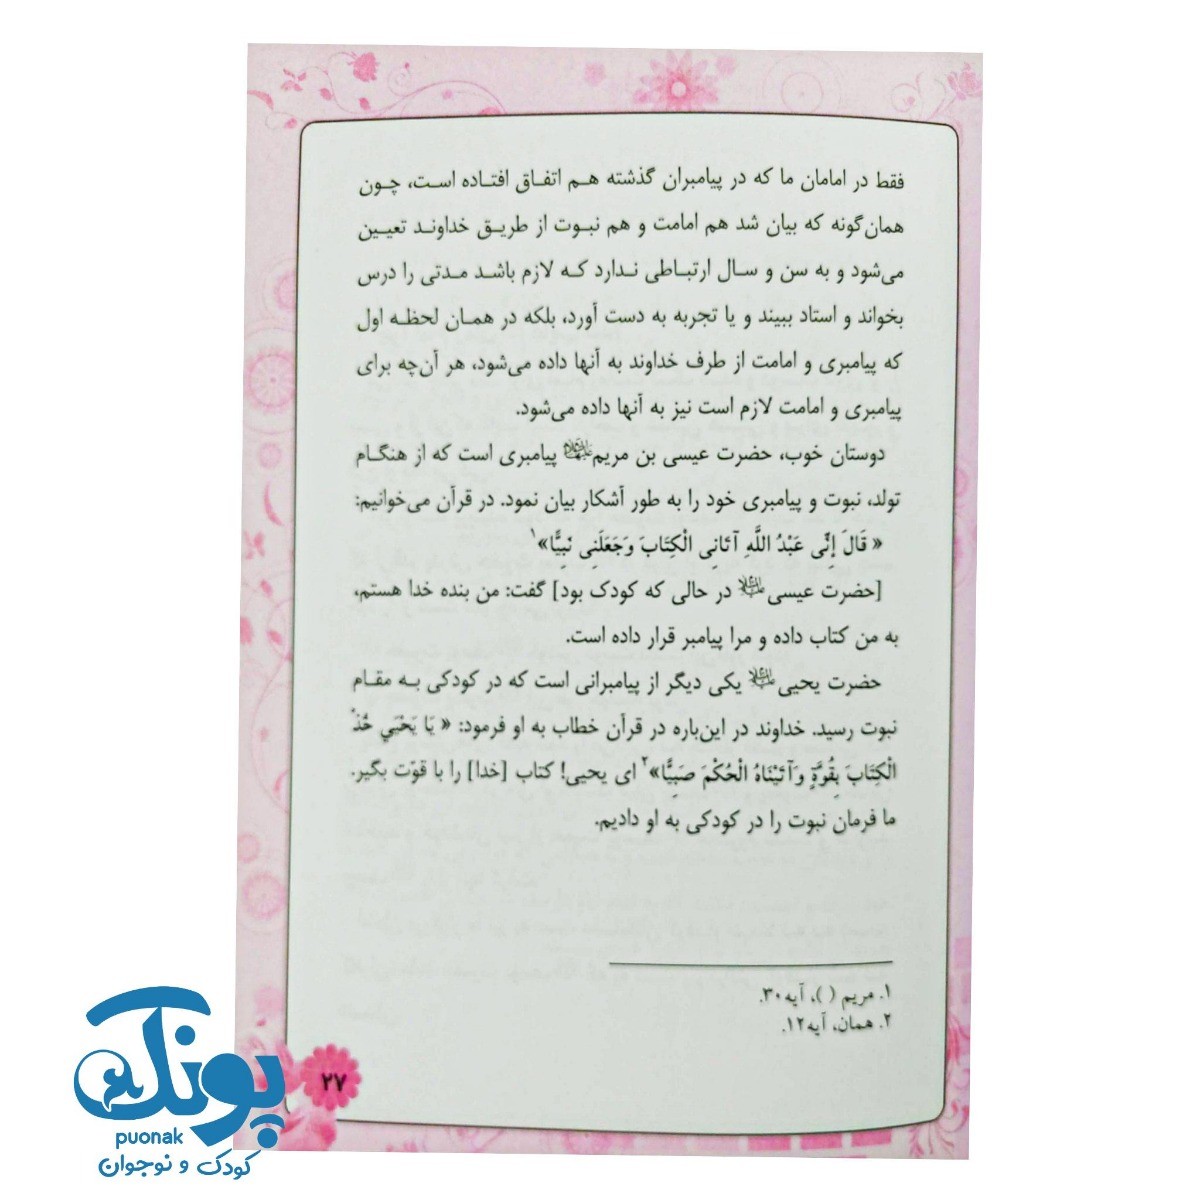 فقط در امامان ما که در پیامبران گذشته هم اتفاق افتاده است، چون
همان‌گونه که بیان شد هم امامت و هم نبوت از طریق خداوند تعیین
می‌شود و به سن و سال ارتباطی ندارد که لازم باشد مدتی را درس
بخواند و استاد ببیند و یا تجربه به دست آورد، بلکه در همان لحظه اول
که پیامبری و امامت از طرف خداوند به آنها داده می‌شود، هر آن‌چه برای
پیامبری و امامت لازم است نیز به آنها داده می‌شود.
دوستان خوب، حضرت عیسی بن مریم پیامبری است که از هنگام
تولد، نبوت و پیامبری خود را به طور آشکار بیان نمود. در قرآن می‌خوانیم:
« قَالَ إِنِّی عَبْدُ اللَّهِ آتَانِی الْکِتَابَ وَجَعَلَنِی نَبِیًّا»۱
[حضرت عیسی در حالی که کودک بود] گفت: من بنده خدا هستم،
به من کتاب داده و مرا پیامبر قرار داده است.
حضرت یحیی یکی دیگر از پیامبرانی است که در کودکی به مقام
نبوت رسید. خداوند در این‌باره در قرآن خطاب به او فرمود: « یَا یَحْیَی خُذْ
الْکِتَابَ بِقُوَّةٍ وَآتَیْنَاهُ الْحُکْمَ صَبِیًّا»۲ ای یحیی! کتاب [خدا] را با قوّت بگیر.
ما فرمان نبوت را در کودکی به او دادیم.
۱. مریم ( )، آیه۳۰.
۲. همان، آیه۱۲.
۲۷
پونک
puonak
کودک و نوجوان